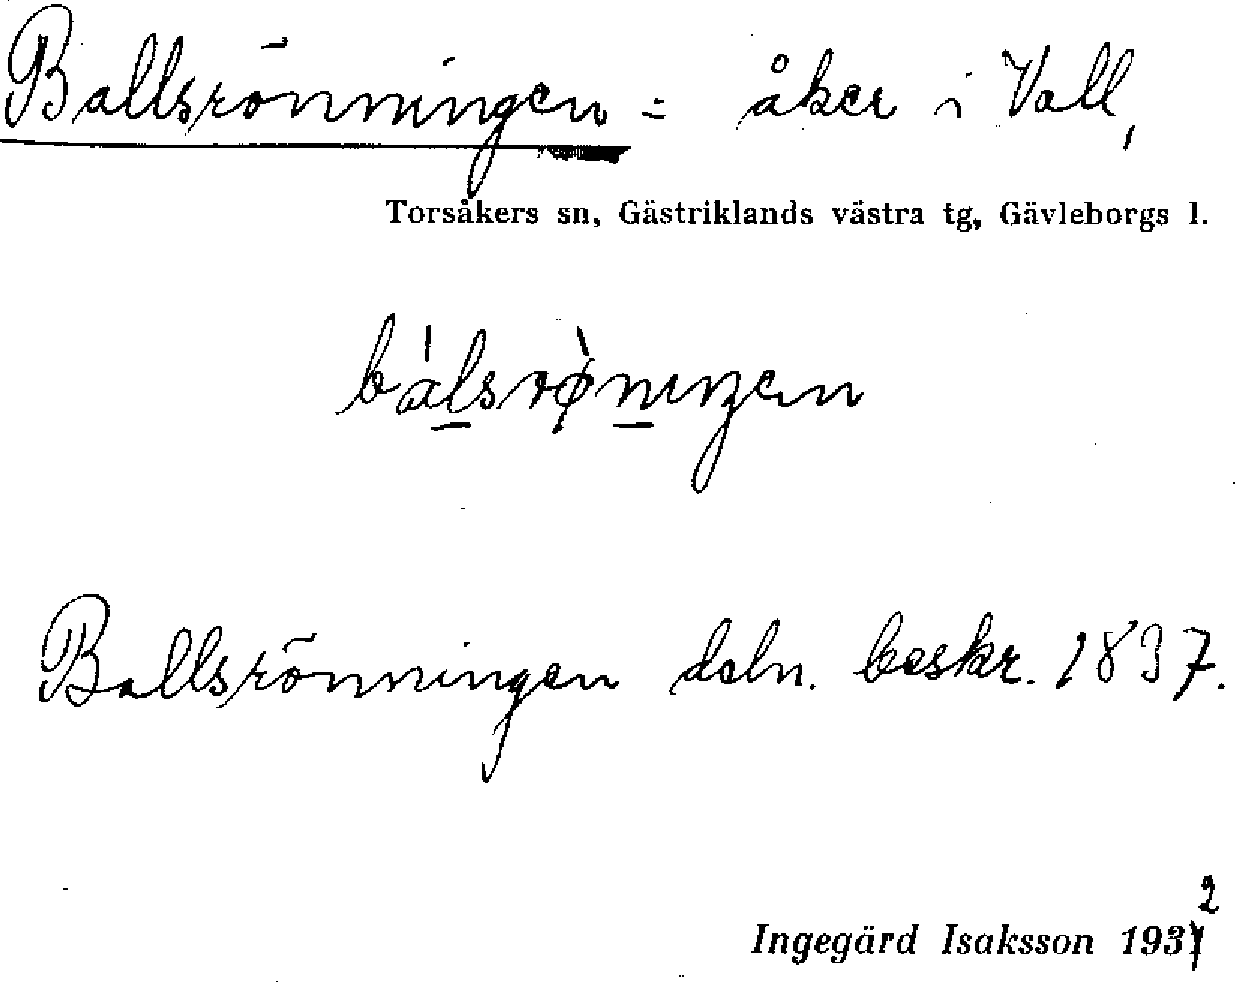 Ballsrönningen = åker i Vall,
Torsåkers sn, Gästriklands västra tg, Gävleborgs l.
bálsrø̀nıŋen
Ballsrönningen deln. beskr. 1837.
Ingegärd Isaksson 1932